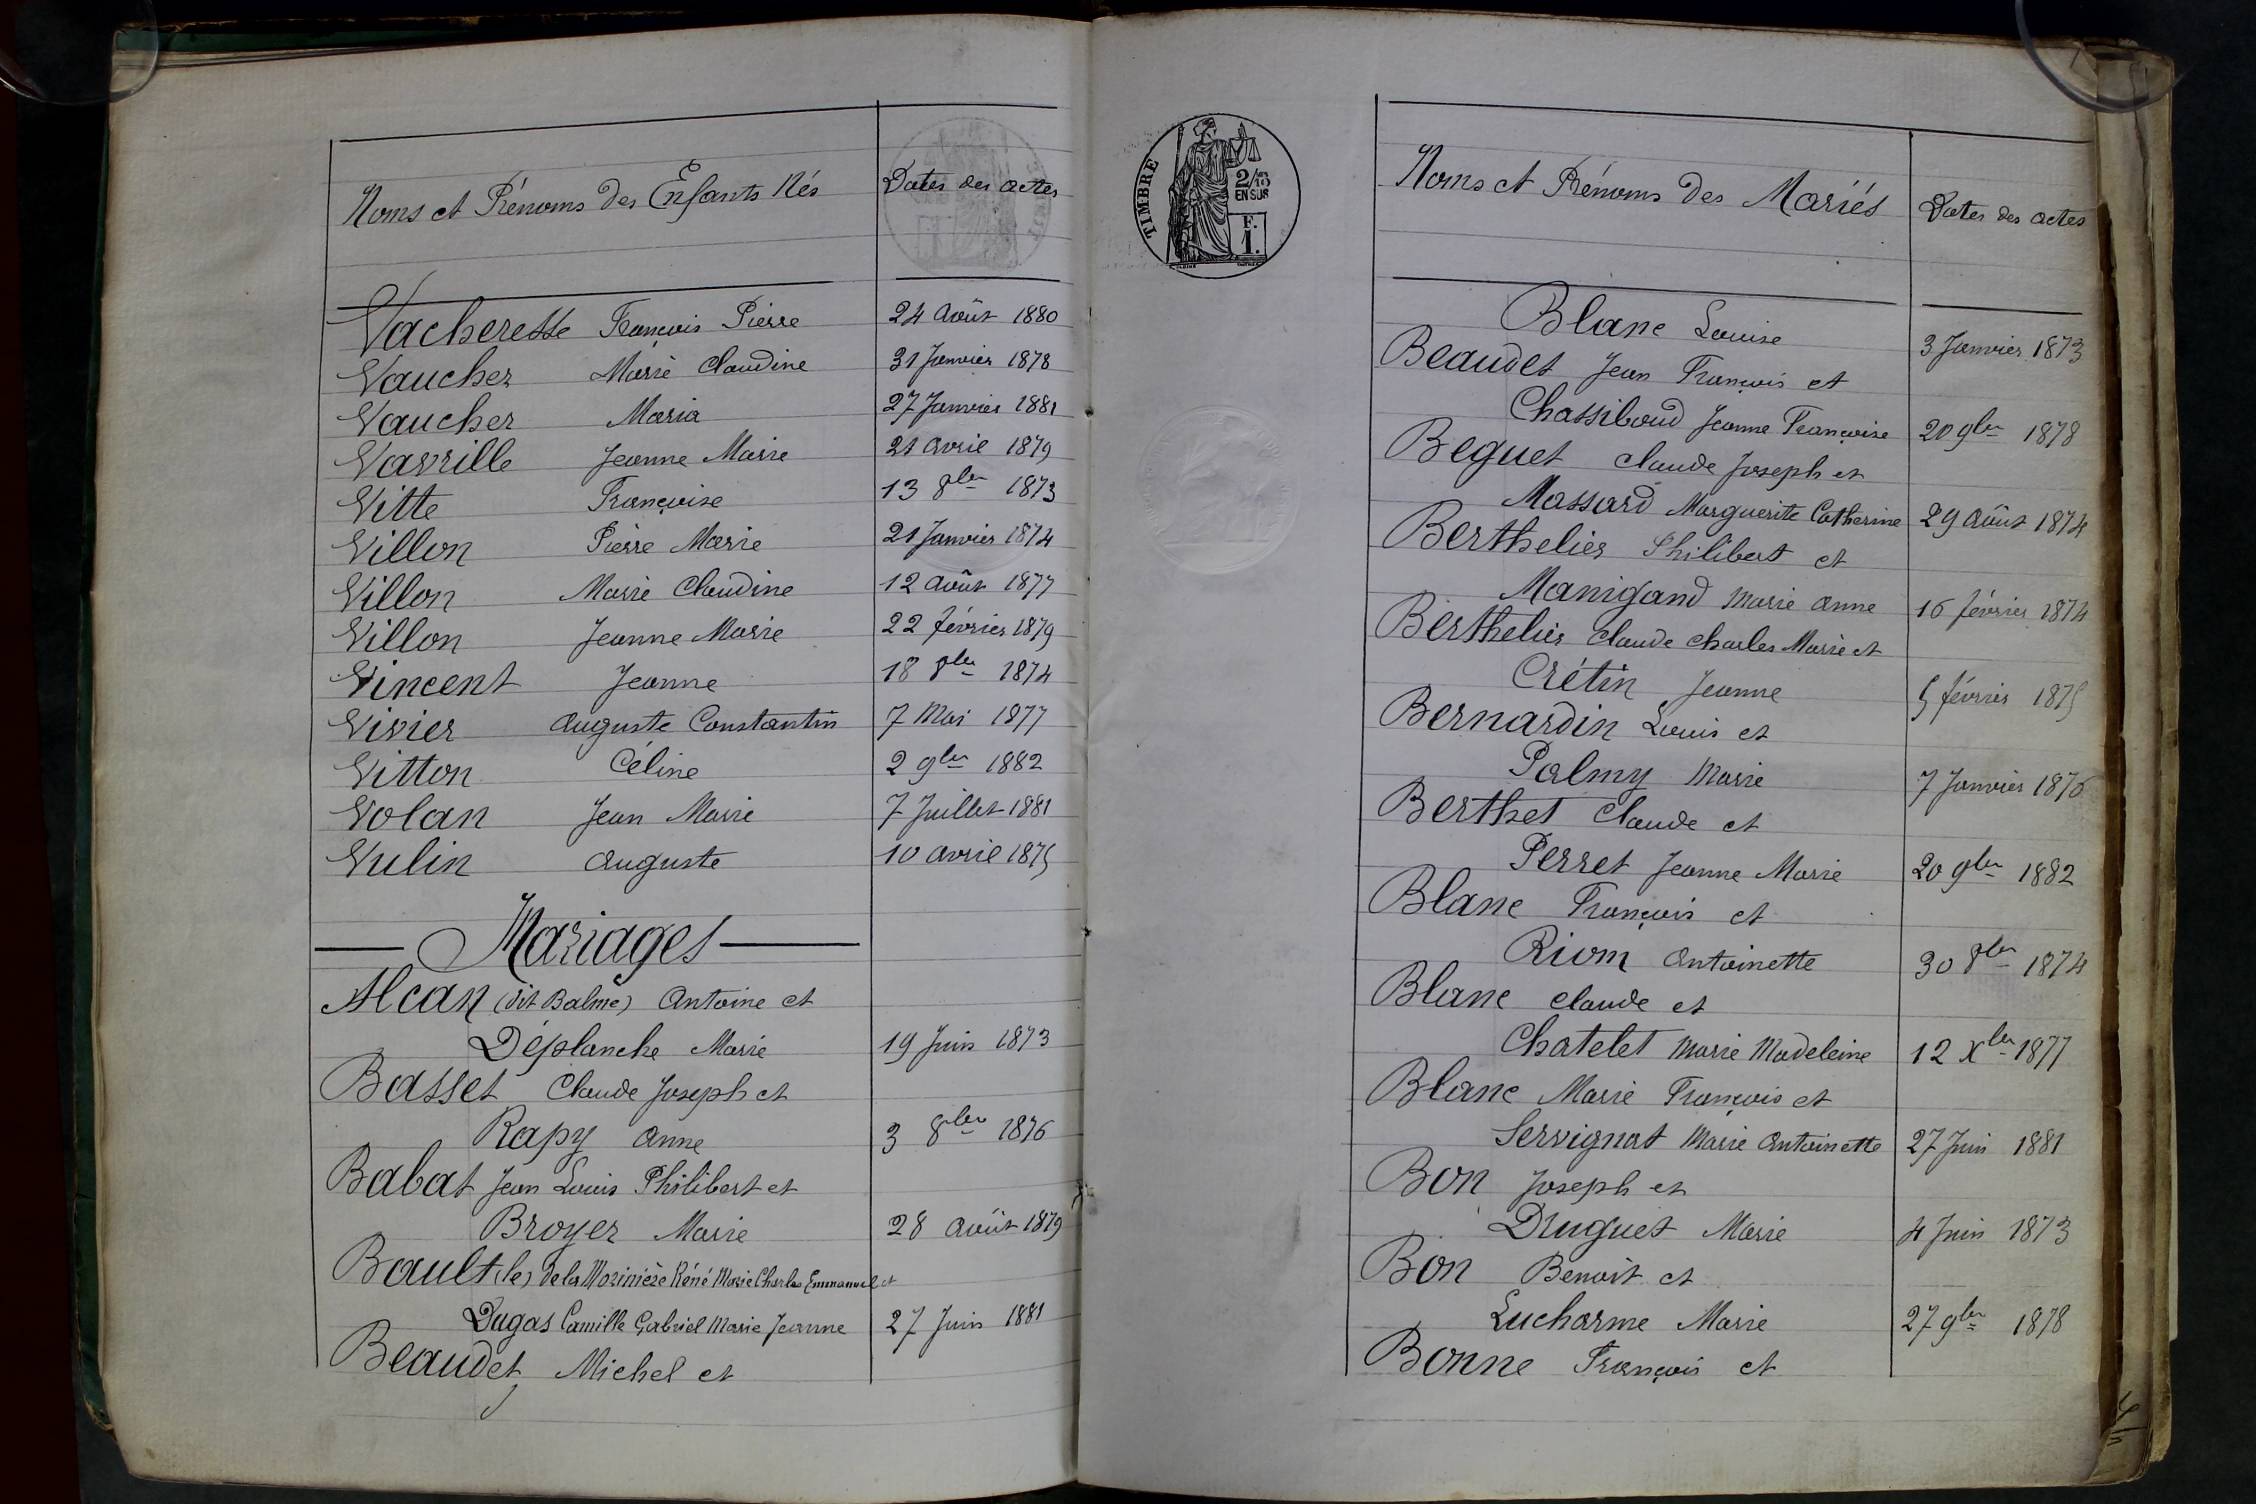 Noms et Prénoms des Enfants Nés
Dates des actes
Vacheresse François Pierre 24 Août 1880
Vaucher Marie Claudine 31 Janvier 1878
Vaucher Maria 27 Janvier 1881
Vavrille Jeanne Marie 21 Avril 1879
Vitte Françoise 13 8bre 1873
Villon Pierre Marie 21 Janvier 1874
Villon Marie Claudine 12 Août 1877
Villon Jeanne Marie 22 février 1879
Vincent Jeanne 18 8bre 1874
Vivier Auguste Constantin 7 Mai 1877
Vitton Céline 2 9bre 1882
Volan Jean Marie 7 Juillet 1881
Vulin Auguste 10 Avril 1875
Mariages
Alcan (dit Balme) Antoine et
Déplanche Marie 19 Juin 1873
Basset Claude Joseph et
Rapy Anne 3 8bre 1876
Babat Jean Louis Philibert et
Broyer Marie 28 Août 1879
Bault (le) de la Morinière Réné Marie Charles Emmanuel et
Dugas Camille Gabriel Marie Jeanne 27 Juin 1881
Beaudet Michel et
TIMBRE
2/10
EN SUS
F.
1.
Noms et Prénoms des Mariés
Dates des actes
Blanc Louise 3 Janvier 1873
Beaudet Jean François et
Chassiboud Jeanne Françoise 20 9bre 1878
Beguet Claude Joseph et
Massard Marguerite Catherine 29 Août 1874
Berthelier Philibert et
Manigand Marie Anne 16 février 1874
Berthelier Claude Charles Marie et
Crétin Jeanne 5 février 1875
Bernardin Louis et
Palmy Marie 7 Janvier 1876
Berthet Claude et
Perret Jeanne Marie 20 9bre 1882
Blanc François et
Riom Antoinette 30 8bre 1874
Blanc Claude et
Chatelet Marie Madeleine 12 Xbre 1877
Blanc Marie François et
Servignat Marie Antoinette 27 Juin 1881
Bon Joseph et
Druguet Marie 4 Juin 1873
Bon Benoit et
Lucharme Marie 27 9bre 1878
Bonne François et